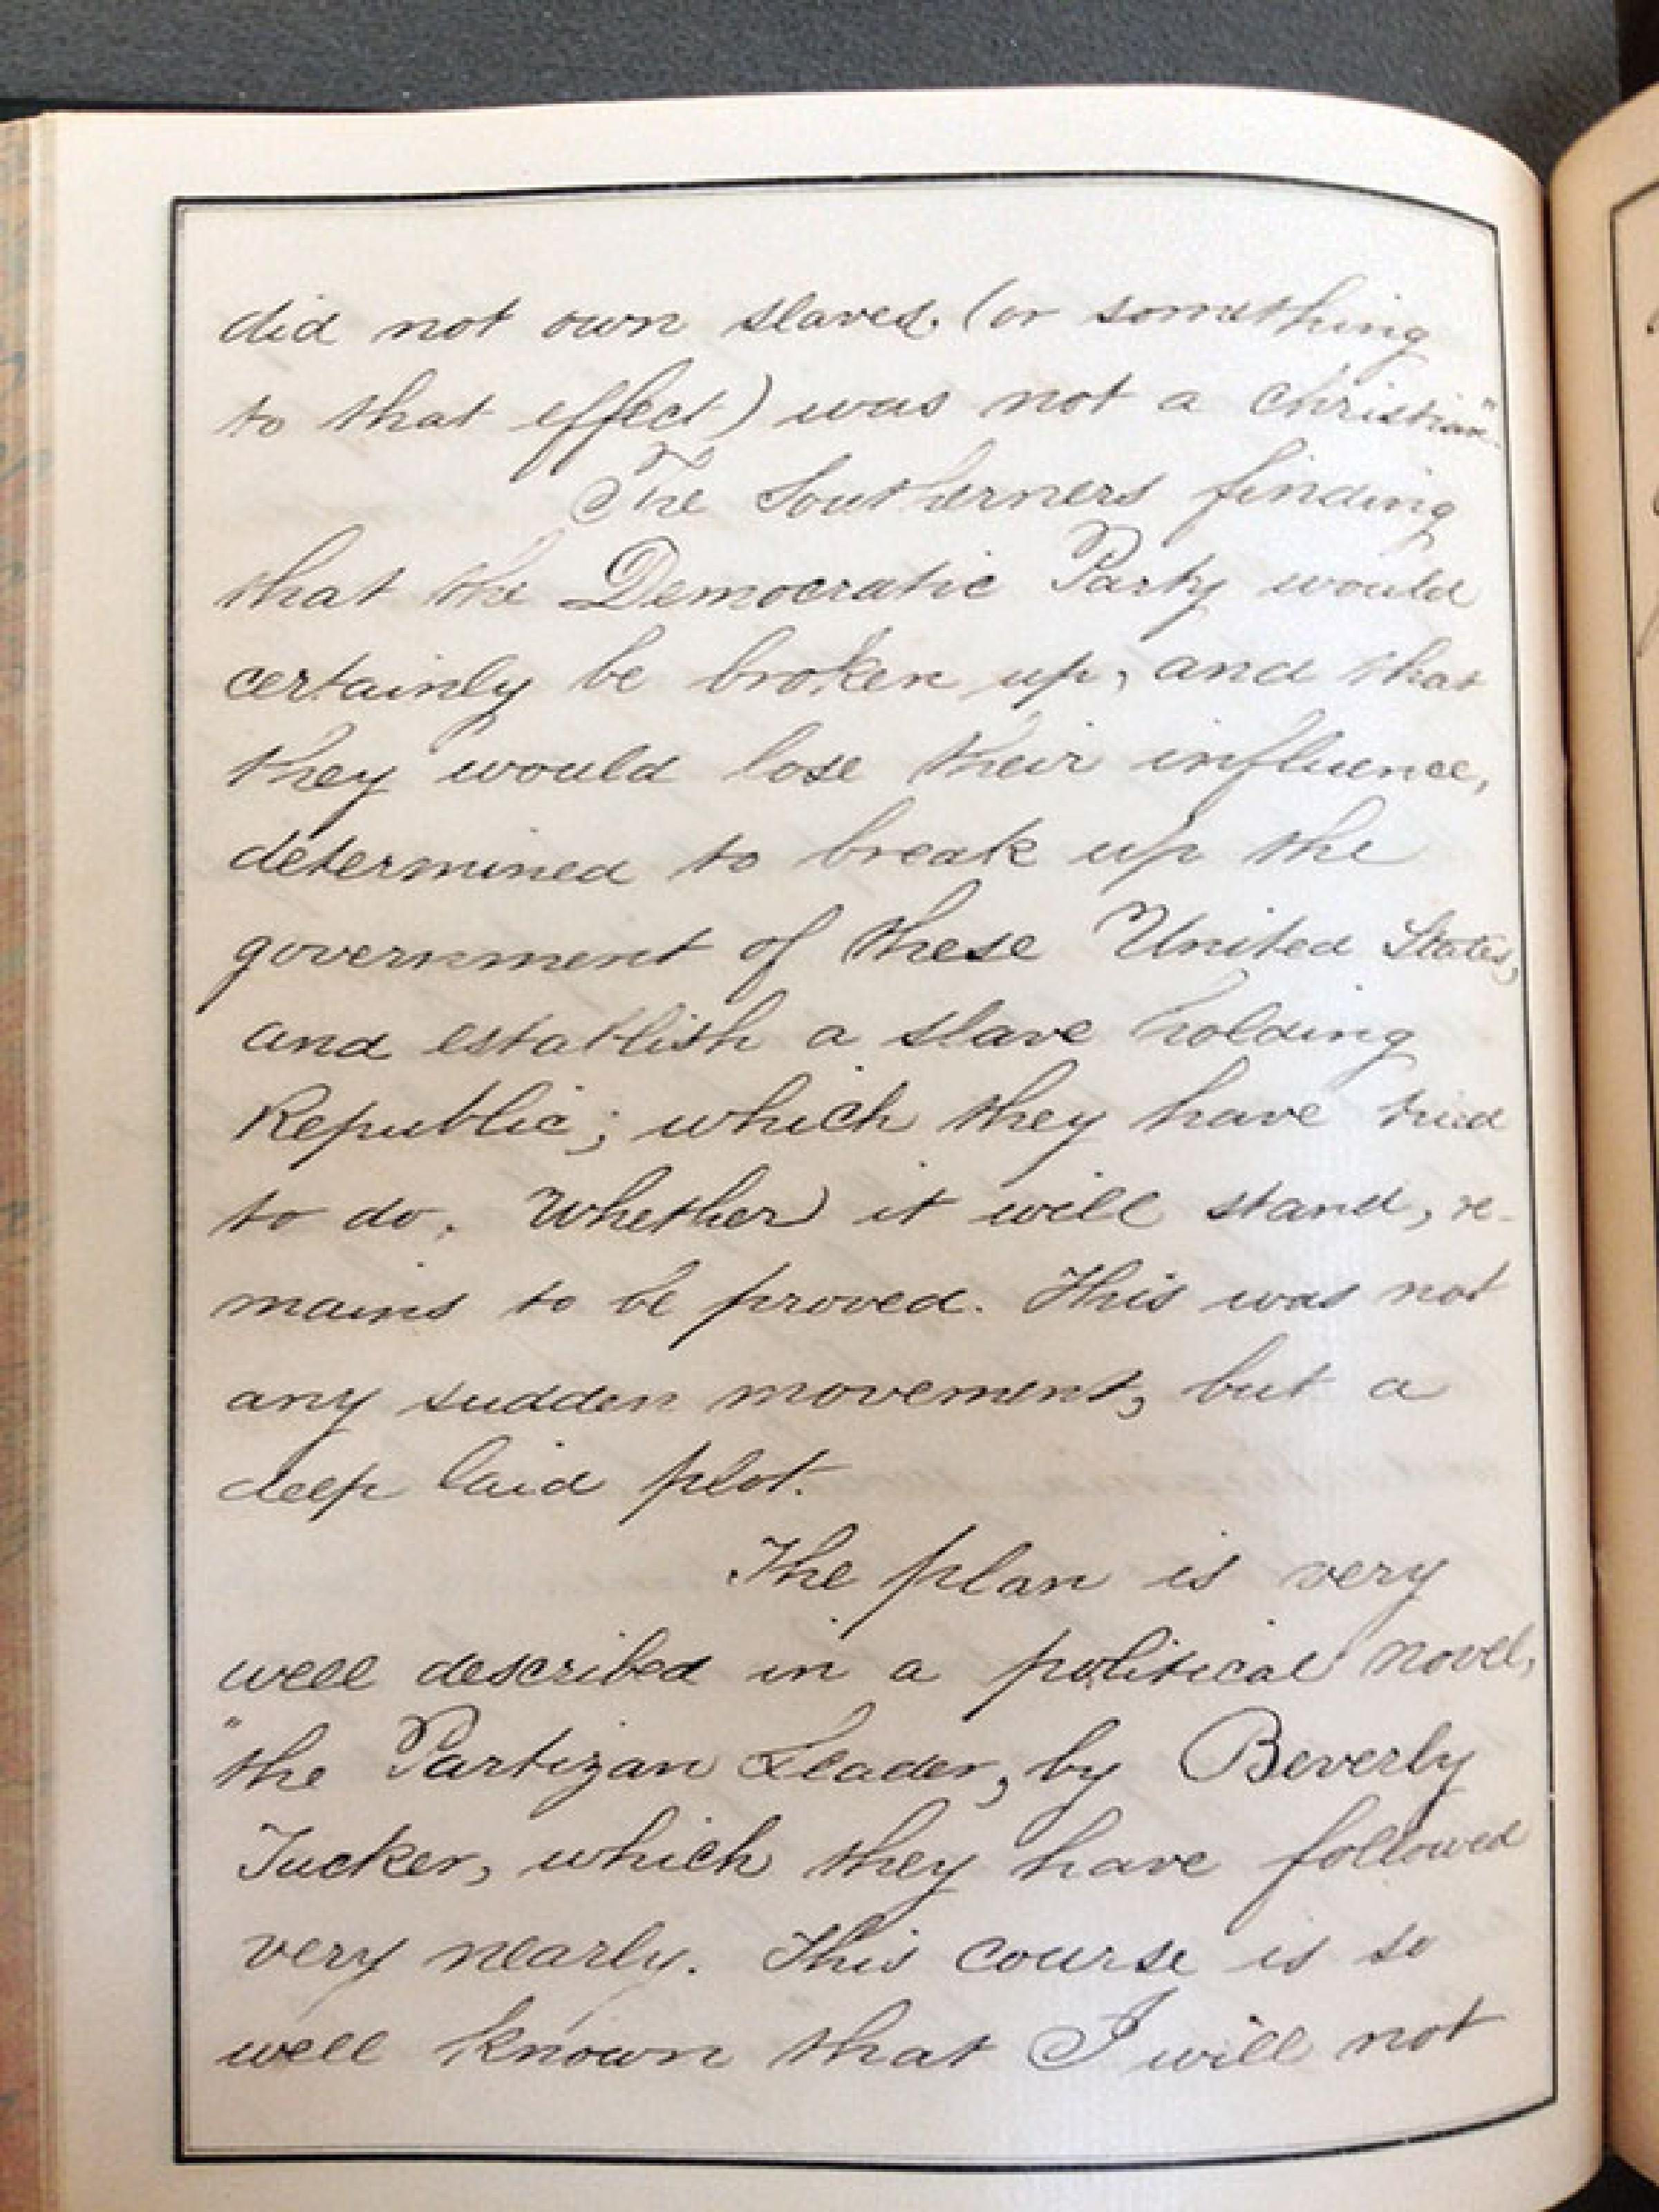 did not own slaves. (or something
to that effect) was not a christian".
The Southerners finding
that the Democratic Party would
certainly be broken up, and that
they would lose their influence,
determined to break up the
government of these United States,
and establish a slave holding
Republic; which they have tried
to do. Whether it will stand, re-
mains to be proved. This was not
any sudden movement, but a
deep laid plot.
The plan is very
well described in a political novel,
"the Partizan Leader, by Beverly
Tucker, which they have followed
very nearly. This course is so
well known that I will not